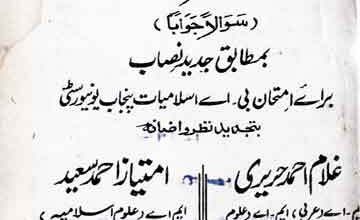 (سوالاً جواباً)
بمطابق جدید نصاب
برائے امتحان بی۔ اے اسلامیات پنجاب یونیورسٹی
بتجدید نظر و اضافہ
غلام احمد حریری امتیاز احمد سعید
ایم۔اے (عربی) ایم۔اے (علوم ایم اے (علوم اسلامیہ)